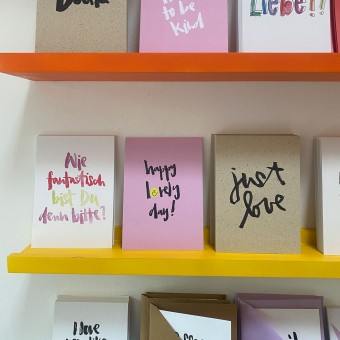 to be
kind
Liebe!!
Wie
fantastisch
bist Du
denn bitte?
happy
lovely
day!
just
love
I love